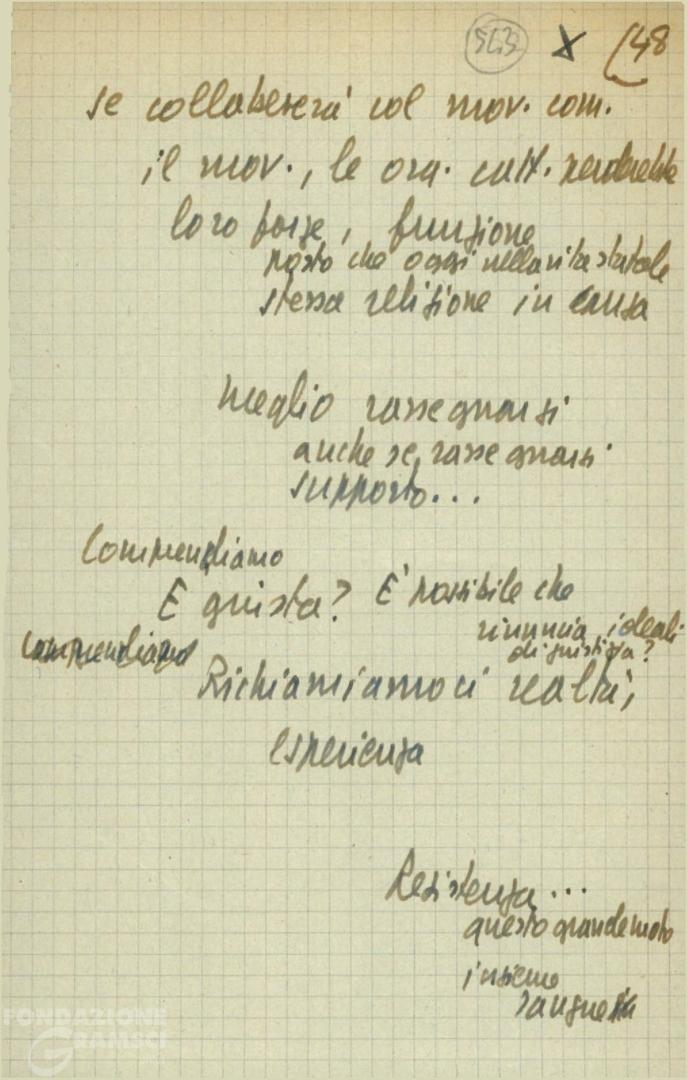 563 X 48
se collaborerà col mov. com.
il mov., le org. catt. perderebbe
loro forze, funzione
posto che oggi nella vita statale
stessa religione in causa
meglio rassegnarsi
anche se rassegnarsi
supporto...
Comprendiamo
È giusta? È possibile che
rinuncia ideali
di giustizia?
Comprendiamo
Richiamiamoci realtà,
esperienza
Resistenza...
questo grande moto
insieme
sangue
FONDAZIONE
GRAMSCI